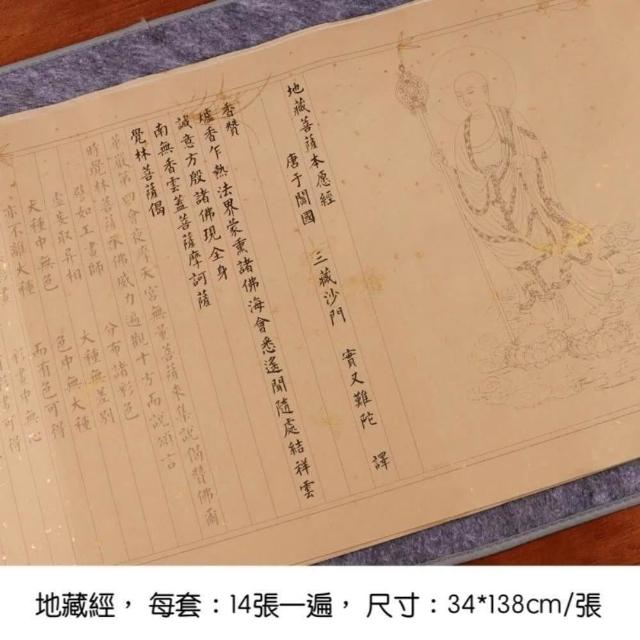 地藏菩薩本愿經
唐于闐國 三藏沙門 實又難陀 譯
香贊
爐香乍熱法界蒙熏諸佛海會悉遙聞隨處結祥雲
誠意方殷諸佛現全身
南無香雲蓋菩薩摩訶薩
覺林菩薩偈
第四會夜摩天宮無量菩薩來集說偈贊佛爾
時覺林菩薩承佛威力遍觀十方而說頌言
譬如工畫師 分布諸彩色
虛妄取異相 大種無差別
大種中無色 色中無大種
亦不離大種 而有色可得
地藏經， 每套：14張一遍， 尺寸：34*138cm/張